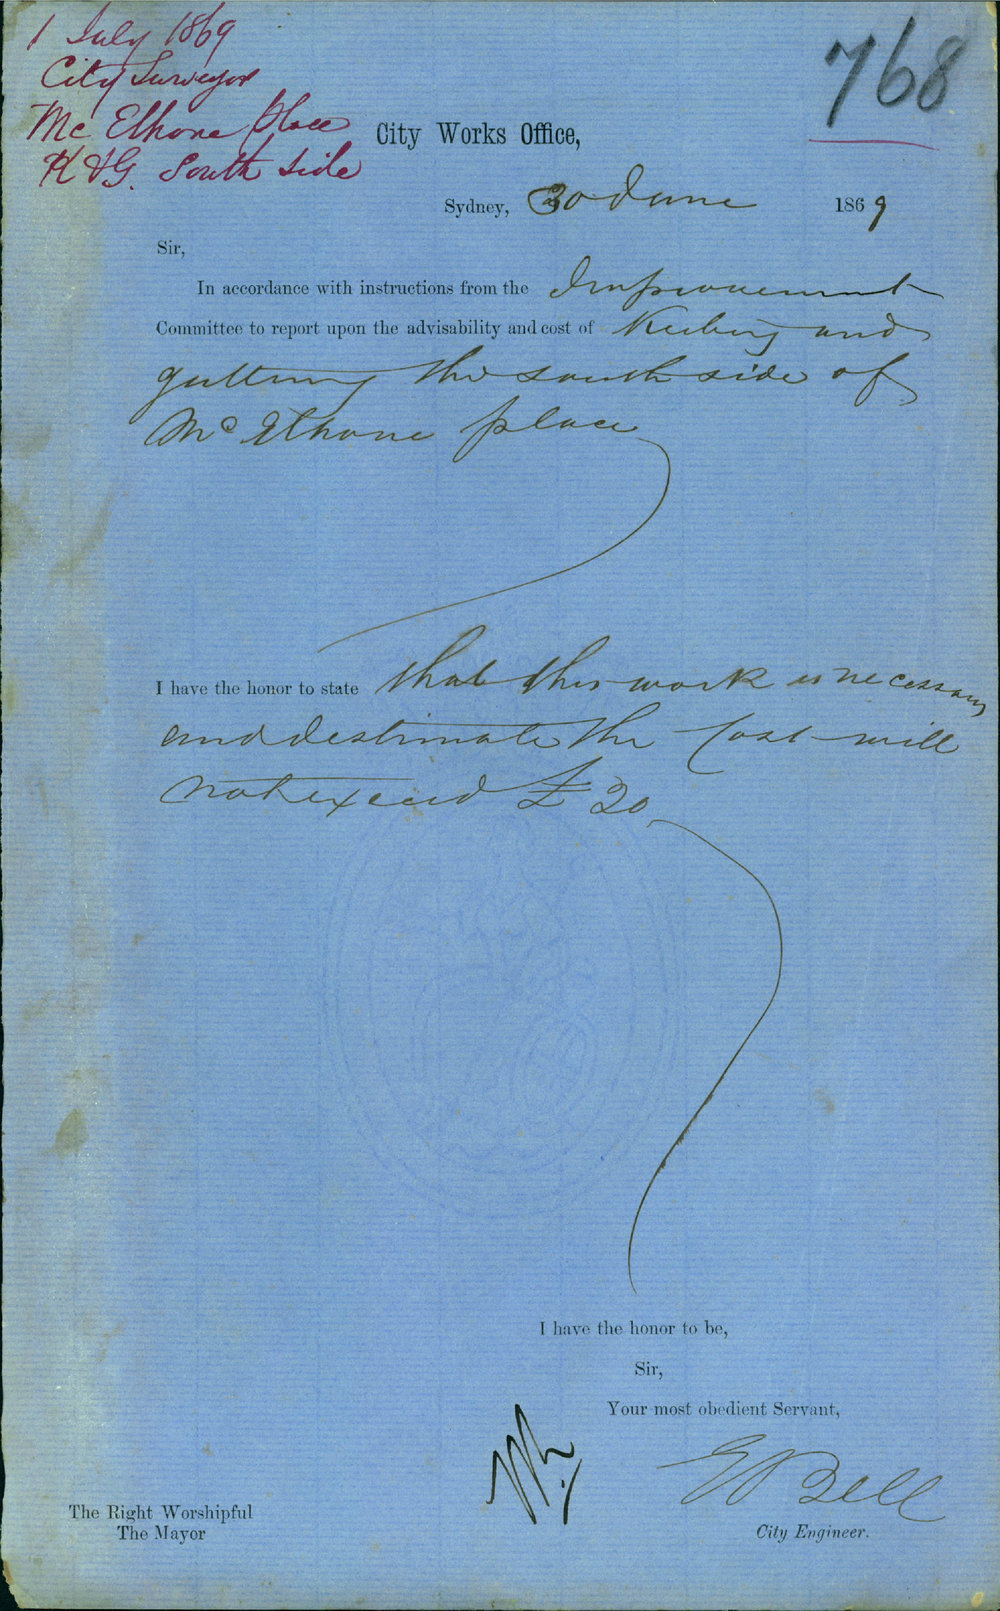 1 July 1869
City Surveyor
Mc Elhone Place
K & G. South Side
768
City Works Office,
Sydney, 30 June 1869
Sir,
In accordance with instructions from the Improvement
Committee to report upon the advisability and cost of Kerbing and
guttering the south side of
Mc Elhone place
I have the honor to state that this work is necessary
and estimate the Cost will
not exceed £
I have the honor to be,
Sir,
Your most obedient Servant,
E Bell
City Engineer.
The Right Worshipful
The Mayor